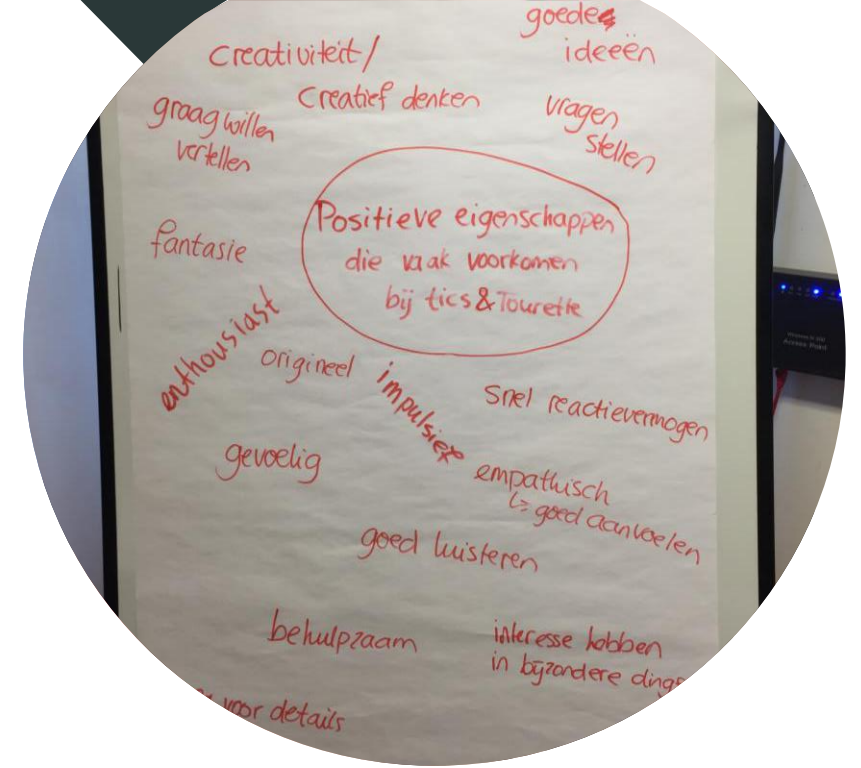 goede
ideeën
creativiteit/
creatief denken
graag willen
vertellen
vragen
stellen
Positieve eigenschappen
die vaak voorkomen
bij tics & Tourette
fantasie
enthousiast
origineel
impulsief
snel reactievermogen
gevoelig
empathisch
↳ goed aanvoelen
goed luisteren
behulpzaam
interesse hebben
in bijzondere
voor details
Access Point